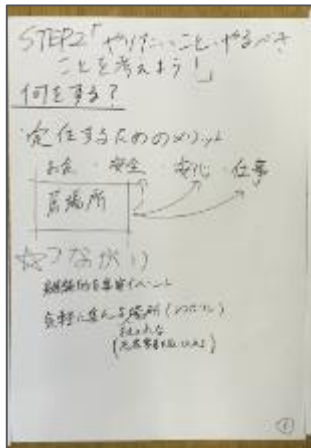 STEP2「やりたいこと・やるべき
ことを考えよう!」
何をする?
・定住するためのメリット
お金・安全・安心・仕事
居場所
☆つながり
継続的な イベント
気軽に集える場所(いつでも)